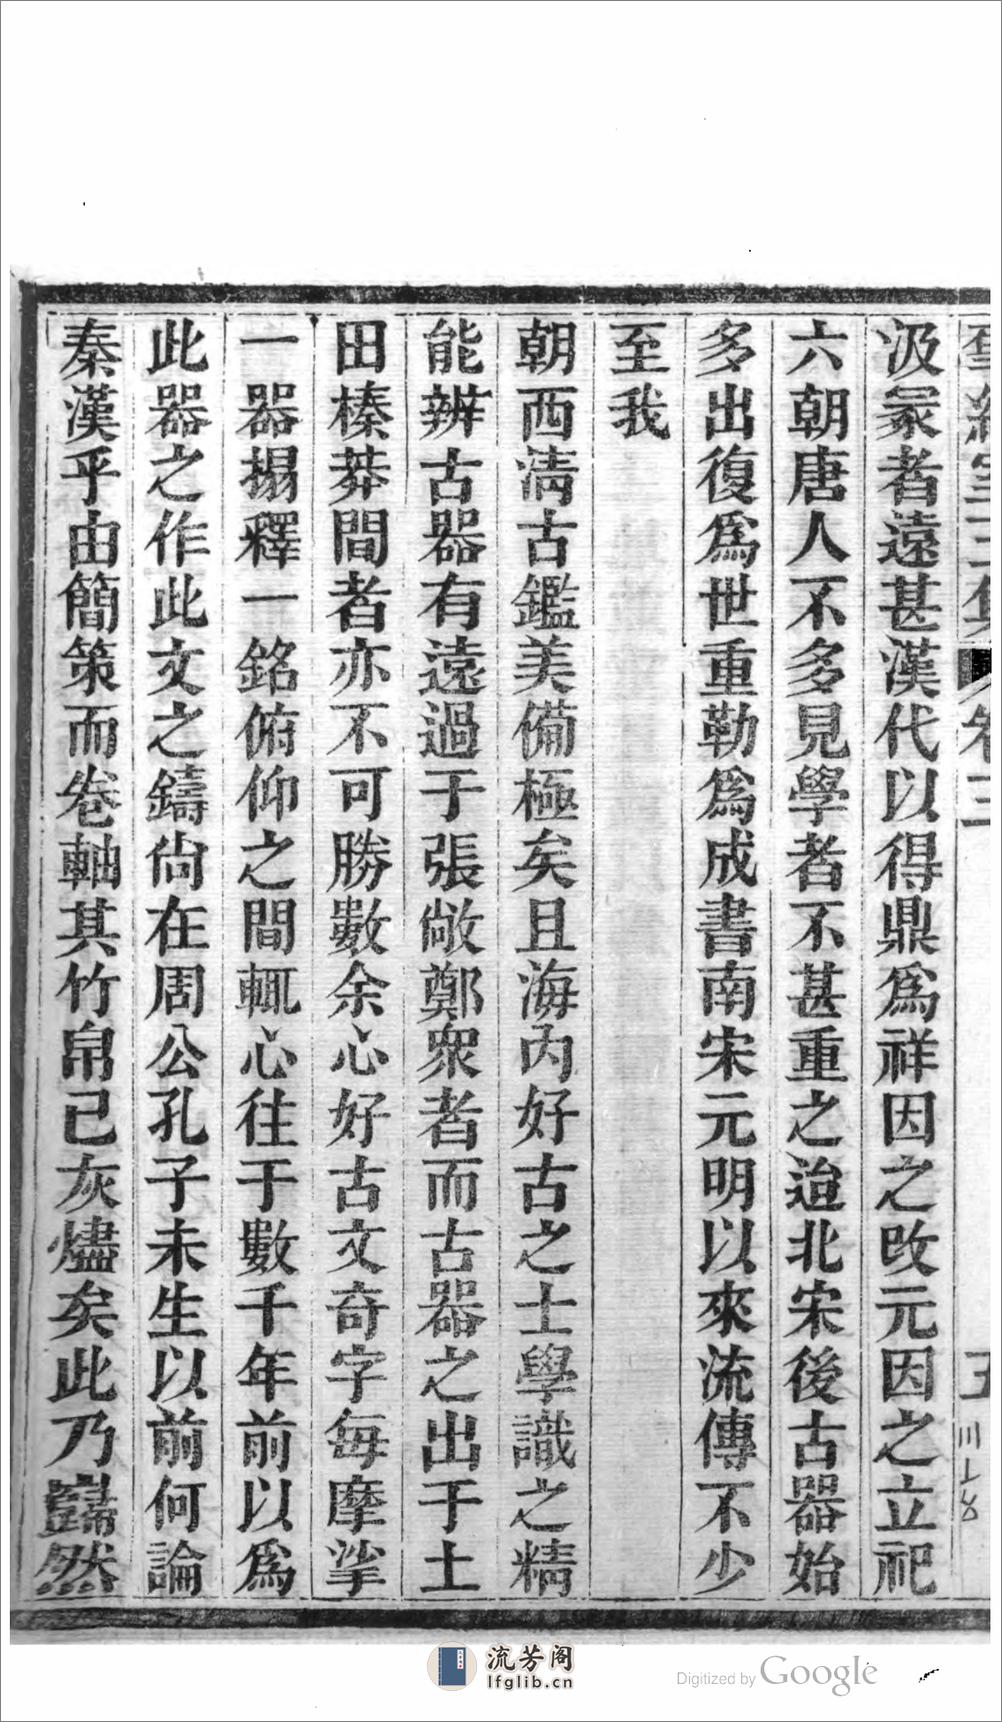 汲冡者遠甚漢代以得鼎爲祥因之改元因之立祀
六朝唐人不多見學者不甚重之迨北宋後古器始
多出復爲世重勒爲成書南宋元明以來流傳不少
至我
朝西淸古鑑美備極矣且海內好古之士學識之精
能辨古器有遠過于張敞鄭衆者而古器之出于土
田榛莽間者亦不可勝數余心好古文奇字每摩挲
一器搨釋一銘俯仰之間輒心往于數千年前以爲
此器之作此文之鑄尙在周公孔子未生以前何論
秦漢乎由簡策而卷軸其竹帛已灰燼矣此乃巋然
卷三
流芳阁
lfglib.cn
Digitized by Google